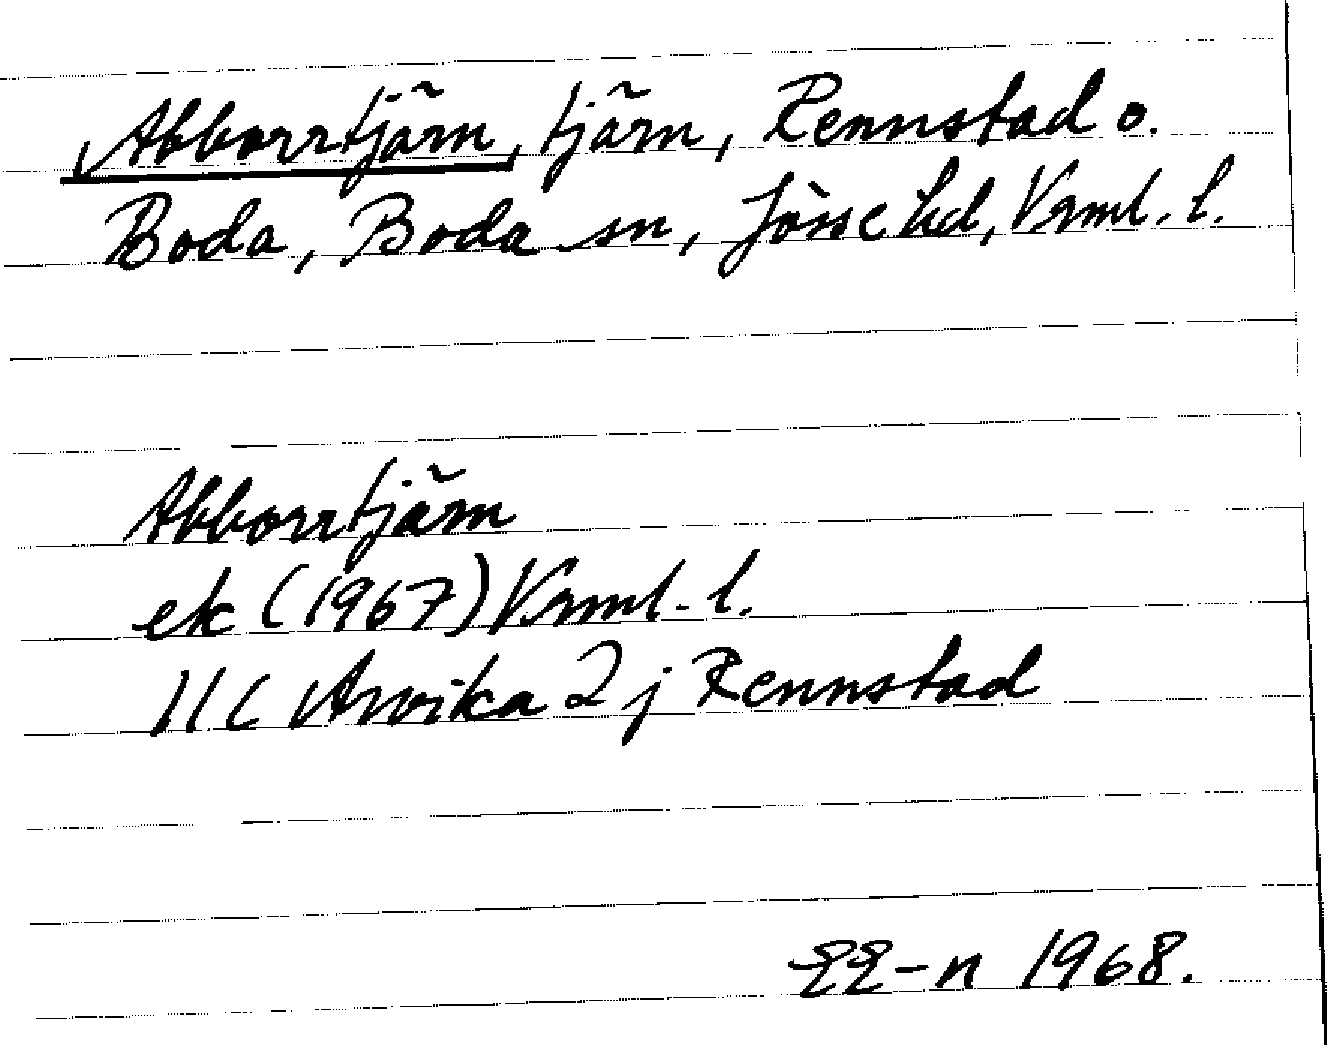 Abborrtjärn, tjärn, Rennstad o.
Boda, Boda sn, Jösse hd, Vrml. l.
Abborrtjärn
ek (1967) Vrml. l.
11C Arvika 2j Rennstad
EE-n 1968.